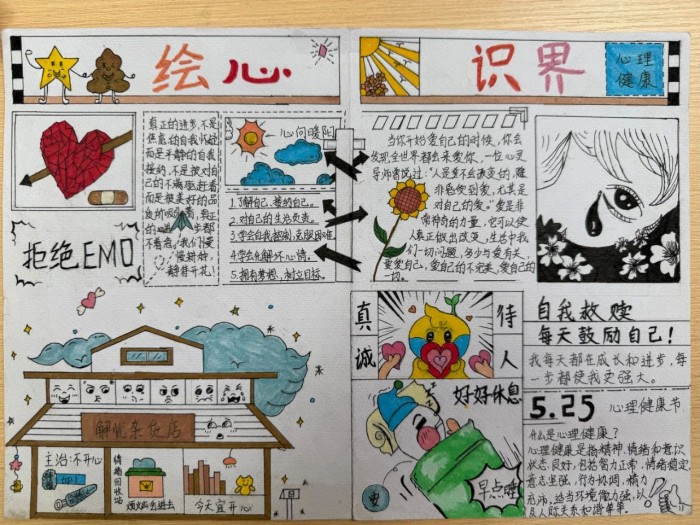 绘心
识界
心理
健康
真正的进步,不是
焦虑的自我怀疑
而是平静的自我
接纳,不是被对自
己的不满驱赶着
而是被美好的品
静静开花。
心向暖阳
1.了解自己,接纳自己。
2.对自己的生活负责。
3.学会自我控制,克服困难
4.学会化解坏心情。
5.拥有梦想,树立目标。
拒绝EMO
当你开始爱自己的时候,你会
发现全世界都会来爱你,一位心灵
导师曾说过:“人是至不会改变的,除
非感受到爱,尤其是
对自己的爱。”爱是非
常神奇的力量,它可以使
人真正做出改变,生活中我
们一切问题,多少与爱有关,
要爱自己,爱自己的不完美,爱自己的
一切。
真诚
待人
好好休息
早点睡
自我救赎
每天鼓励自己!
我每天都在成长和进步,每
一步都使我更强大。
5.25 心理健康节
什么是心理健康?
心理健康是指精神、情绪和意识
状态良好,包括智力正常,情绪稳定,
意志坚强,行为协调,精力
充沛,适当环境能力强,以
及人际关系和谐等。
解忧杂货店
主治:不开心
情绪回收站
烦恼丢进去
今天宜开心